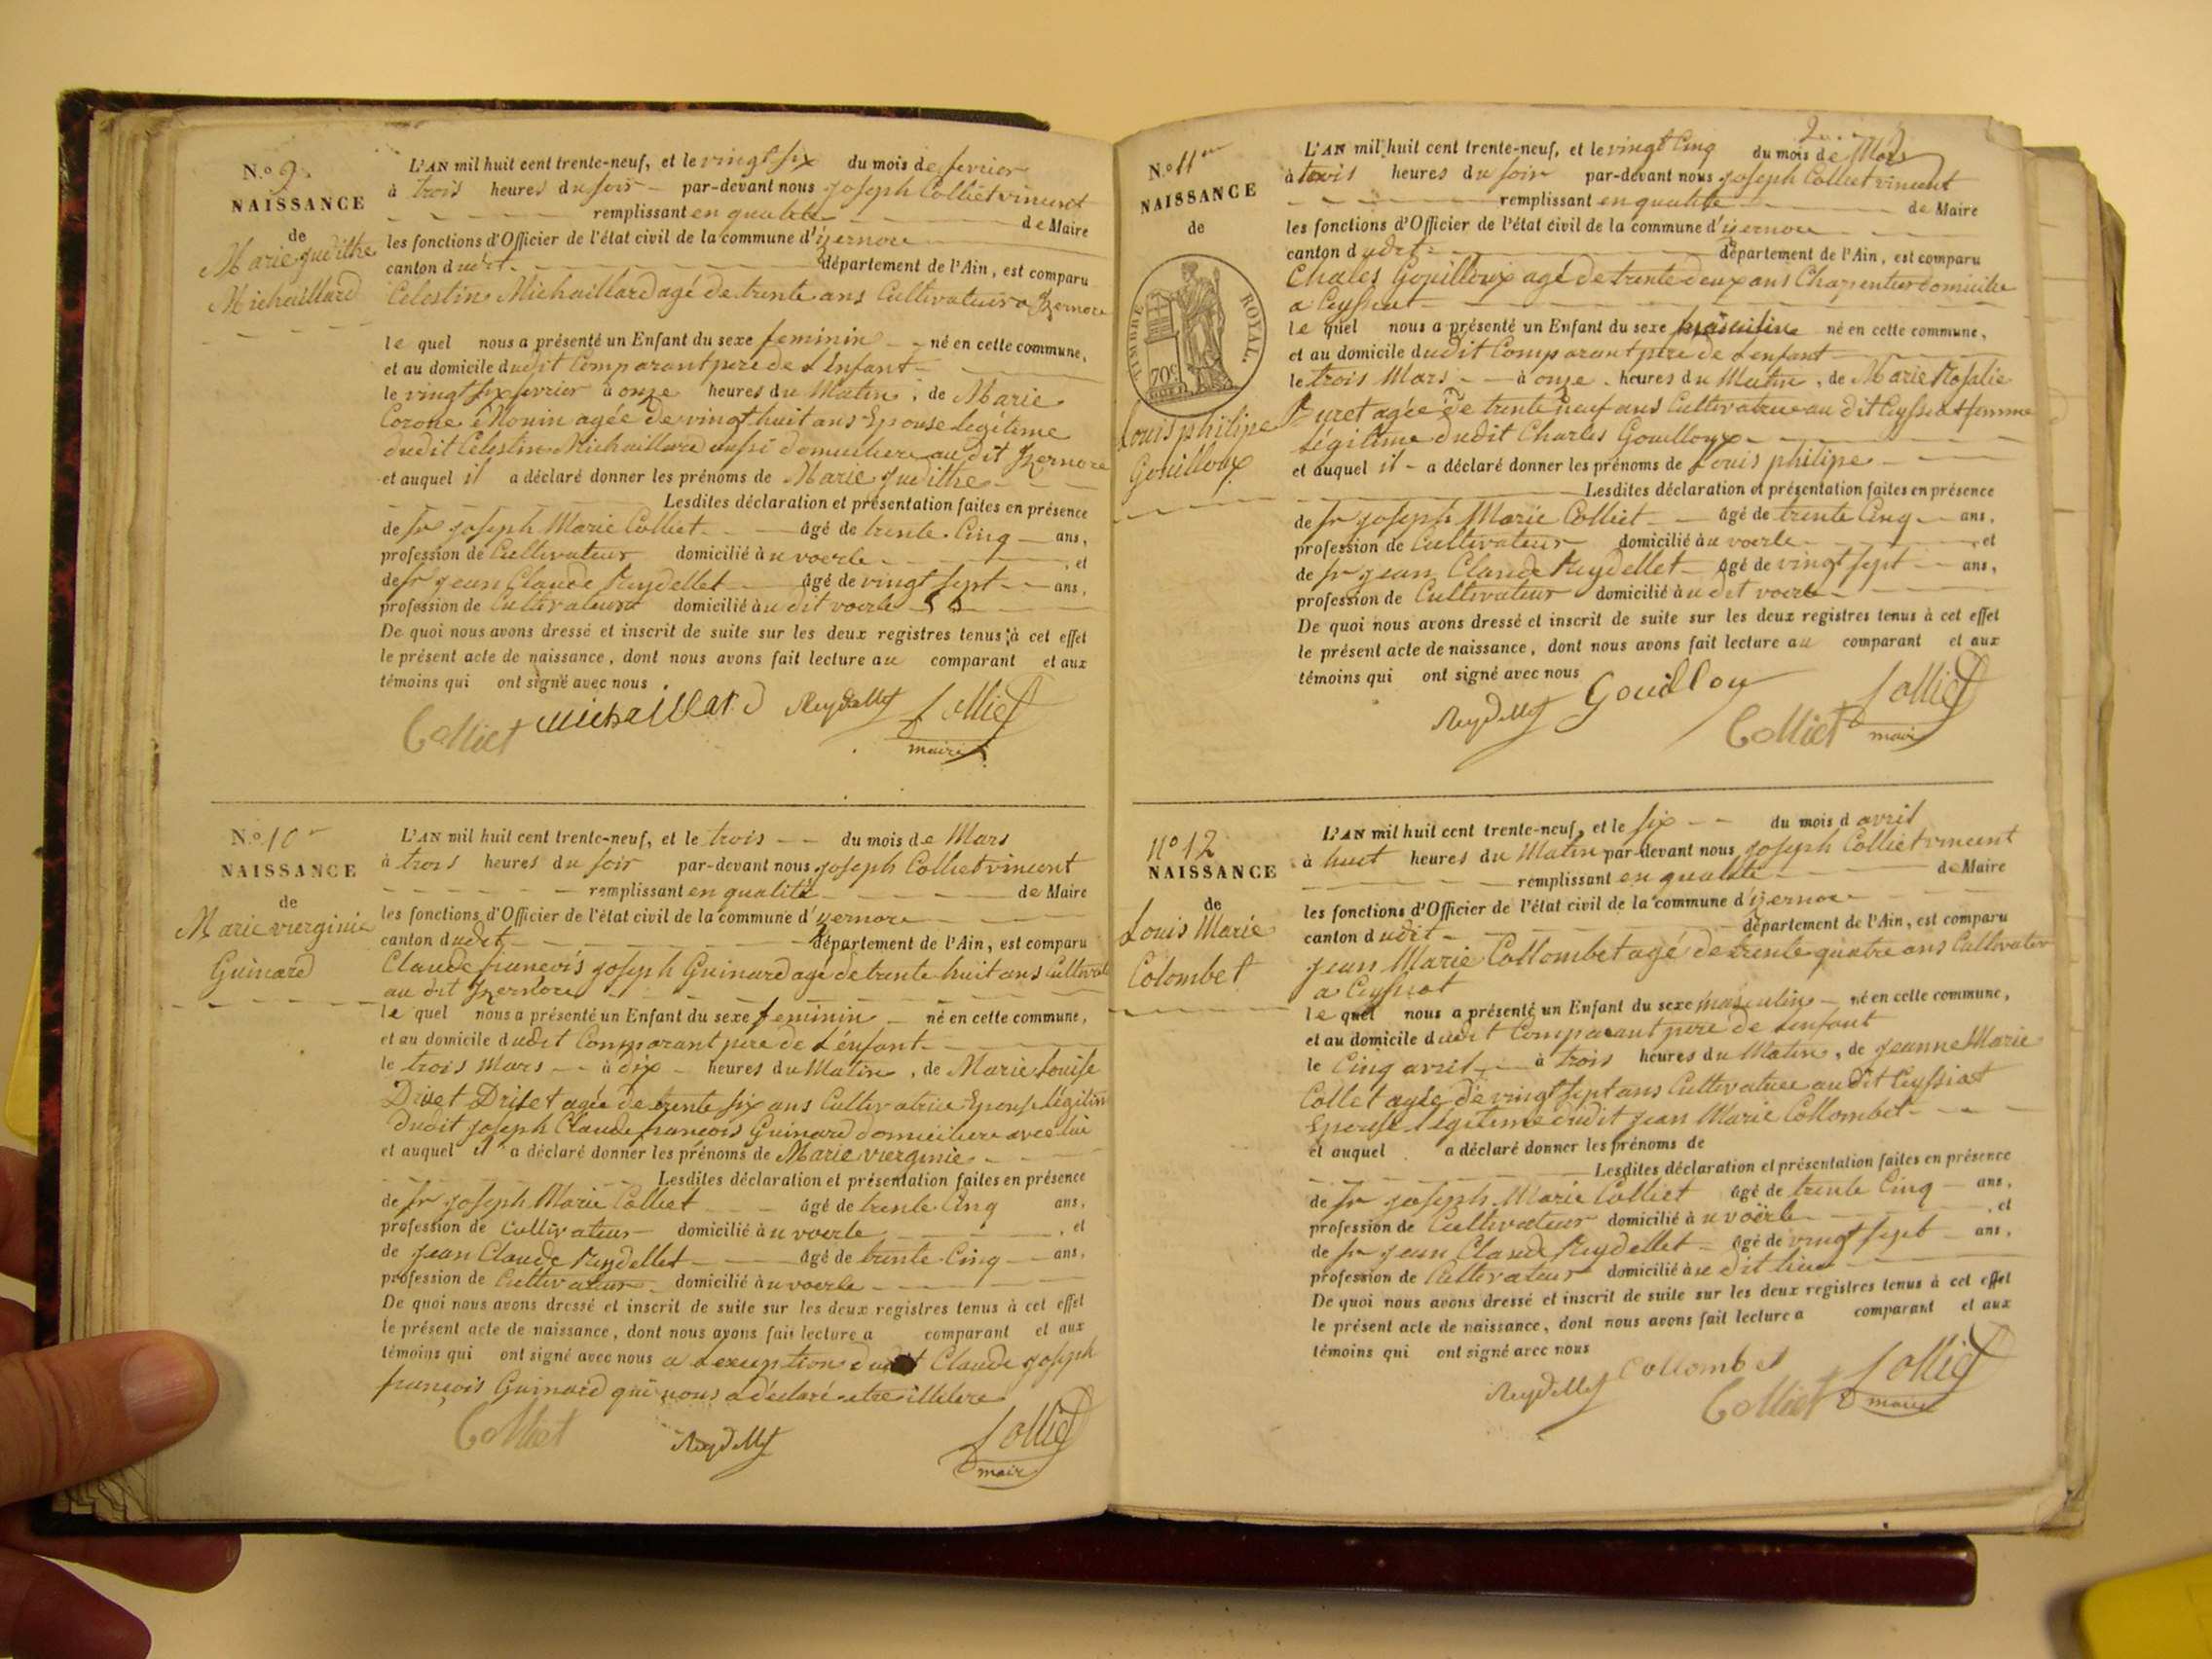 N.o 9.
NAISSANCE
de
Marie Judithe
Michaillard
L'AN mil huit cent trente-neuf, et le vingt six du mois de fevrier
à trois heures du soir par-devant nous joseph Colliet vincent
remplissant en qualité de Maire
les fonctions d'Officier de l'état civil de la commune d'yzernore
canton dudit département de l'Ain, est comparu
Celestin Michaillard agé de trente ans Cultivateur a Yzernore
le quel nous a présenté un Enfant du sexe feminin né en cette commune,
et au domicile dudit Comparant pere de L'Enfant
le vingt six fevrier à onze heures du Matin, de Marie
Monin agée de vingt huit ans Epouse Légitime
dudit Celestin Michaillard aussi domiciliere au dit Yzernore
et auquel il a déclaré donner les prénoms de Marie judithe
Lesdites déclaration et présentation faites en présence
de sr joseph Marie Colliet âgé de trente Cinq ans,
profession de Cultivateur domicilié à u voerle , et
de sr jean Claude Reydellet âgé de vingt sept ans,
profession de Cultivateur domicilié à u dit voerle
De quoi nous avons dressé et inscrit de suite sur les deux registres tenus à cet effet
le présent acte de naissance, dont nous avons fait lecture au comparant et aux
témoins qui ont signé avec nous.
Colliet Michaillard Reydellet Colliet
maire
N.o 10
NAISSANCE
de
Marie vierginie
Guinard
L'AN mil huit cent trente-neuf, et le trois du mois de Mars
à trois heures du soir par-devant nous joseph Colliet vincent
remplissant en qualité de Maire
les fonctions d'Officier de l'état civil de la commune d'yzernore
canton dudit département de l'Ain, est comparu
Claude francois joseph Guinard agé de trente huit ans Cultivat
au dit Yzernore
le quel nous a présenté un Enfant du sexe feminin né en cette commune,
et au domicile dudit Comparant pere de L'énfant
le trois Mars à dix heures du Matin, de Marie Louise
Drset Driset agée de trente six ans Cultivatrice Epouse Légitim
dudit joseph Claude francois Guinard domiciliere avec lui
et auquel il a déclaré donner les prénoms de Marie vierginie
Lesdites déclaration et présentation faites en présence
de sr joseph Marie Colliet âgé de trente Cinq ans,
profession de Cultivateur domicilié à u voerle , et
de jean Claude Reydellet âgé de trente Cinq ans,
profession de Cultivateur domicilié à u voerle
De quoi nous avons dressé et inscrit de suite sur les deux registres tenus à cet effet
le présent acte de naissance, dont nous avons fait lecture a comparant et aux
témoins qui ont signé avec nous a L'exception dudit Claude joseph
francois Guinard qui nous a déclaré etre illitere
Colliet Reydellet Colliet
maire
N.o 11
NAISSANCE
de
TIMBRE ROYAL.
70c
Louis philipe
Gouilloux
L'AN mil huit cent trente-neuf, et le vingt Cinq du mois de Mars
à trois heures du soir par-devant nous joseph Colliet vincent
remplissant en qualité de Maire
les fonctions d'Officier de l'état civil de la commune d'yzernore
canton dudit département de l'Ain, est comparu
Chales Gouilloux agé de trente deux ans Charpentier domicilie
a Ceyssiat
le quel nous a présenté un Enfant du sexe masculin né en cette commune,
et au domicile dudit Comparant pere de L'enfant
le trois Mars à onze heures du Matin, de Marie Rosalie
agée de trente neuf ans Cultivatrice au dit Ceyssiat femme
Légitime dudit Charles Gouilloux
et auquel il a déclaré donner les prénoms de Louis philipe
Lesdites déclaration et présentation faites en présence
de sr joseph Marie Colliet âgé de trente Cinq ans,
profession de Cultivateur domicilié à u voerle , et
de sr jean Claude Reydellet âgé de vingt sept ans,
profession de Cultivateur domicilié à u dit voerle
De quoi nous avons dressé et inscrit de suite sur les deux registres tenus à cet effet
le présent acte de naissance, dont nous avons fait lecture au comparant et aux
témoins qui ont signé avec nous
Reydellet Gouillou Colliet Colliet
maire
N° 12
NAISSANCE
de
Louis Marie
Colombet
L'AN mil huit cent trente-neuf, et le six du mois d avril
à huit heures du Matin par-devant nous joseph Colliet vincent
remplissant en qualité de Maire
les fonctions d'Officier de l'état civil de la commune d'yzernore
canton dudit département de l'Ain, est comparu
jean Marie Collombet agé de trente quatre ans Cultivateur
a Ceyssiat
le quel nous a présenté un Enfant du sexe masculin né en cette commune,
et au domicile dudit Comparant pere de L'enfant
le Cinq avril à trois heures du Matin, de jeanne Marie
Collet agée de vingt sept ans Cultivatrice au dit Ceyssiat
Epouse légitime dudit jean Marie Collombet
et auquel a déclaré donner les prénoms de
Lesdites déclaration et présentation faites en présence
de sr joseph Marie Colliet âgé de trente Cinq ans,
profession de Cultivateur domicilié à u voërle , et
de sr jean Claude Reydellet âgé de vingt sept ans,
profession de Cultivateur domicilié à u dit lieu
De quoi nous avons dressé et inscrit de suite sur les deux registres tenus à cet effet
le présent acte de naissance, dont nous avons fait lecture a comparant et aux
témoins qui ont signé avec nous
Reydellet Collombet Colliet Colliet
maire